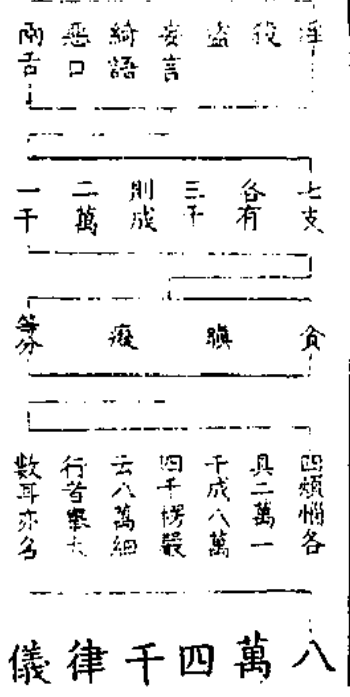 婬 殺 盜 妄言 綺語 惡口 兩舌
七支各有三千則成二萬一千
貪 瞋 癡 等分
四煩惱各具二萬一千成八萬四千楞嚴云八萬細行者舉大數耳亦名
八萬四千律儀